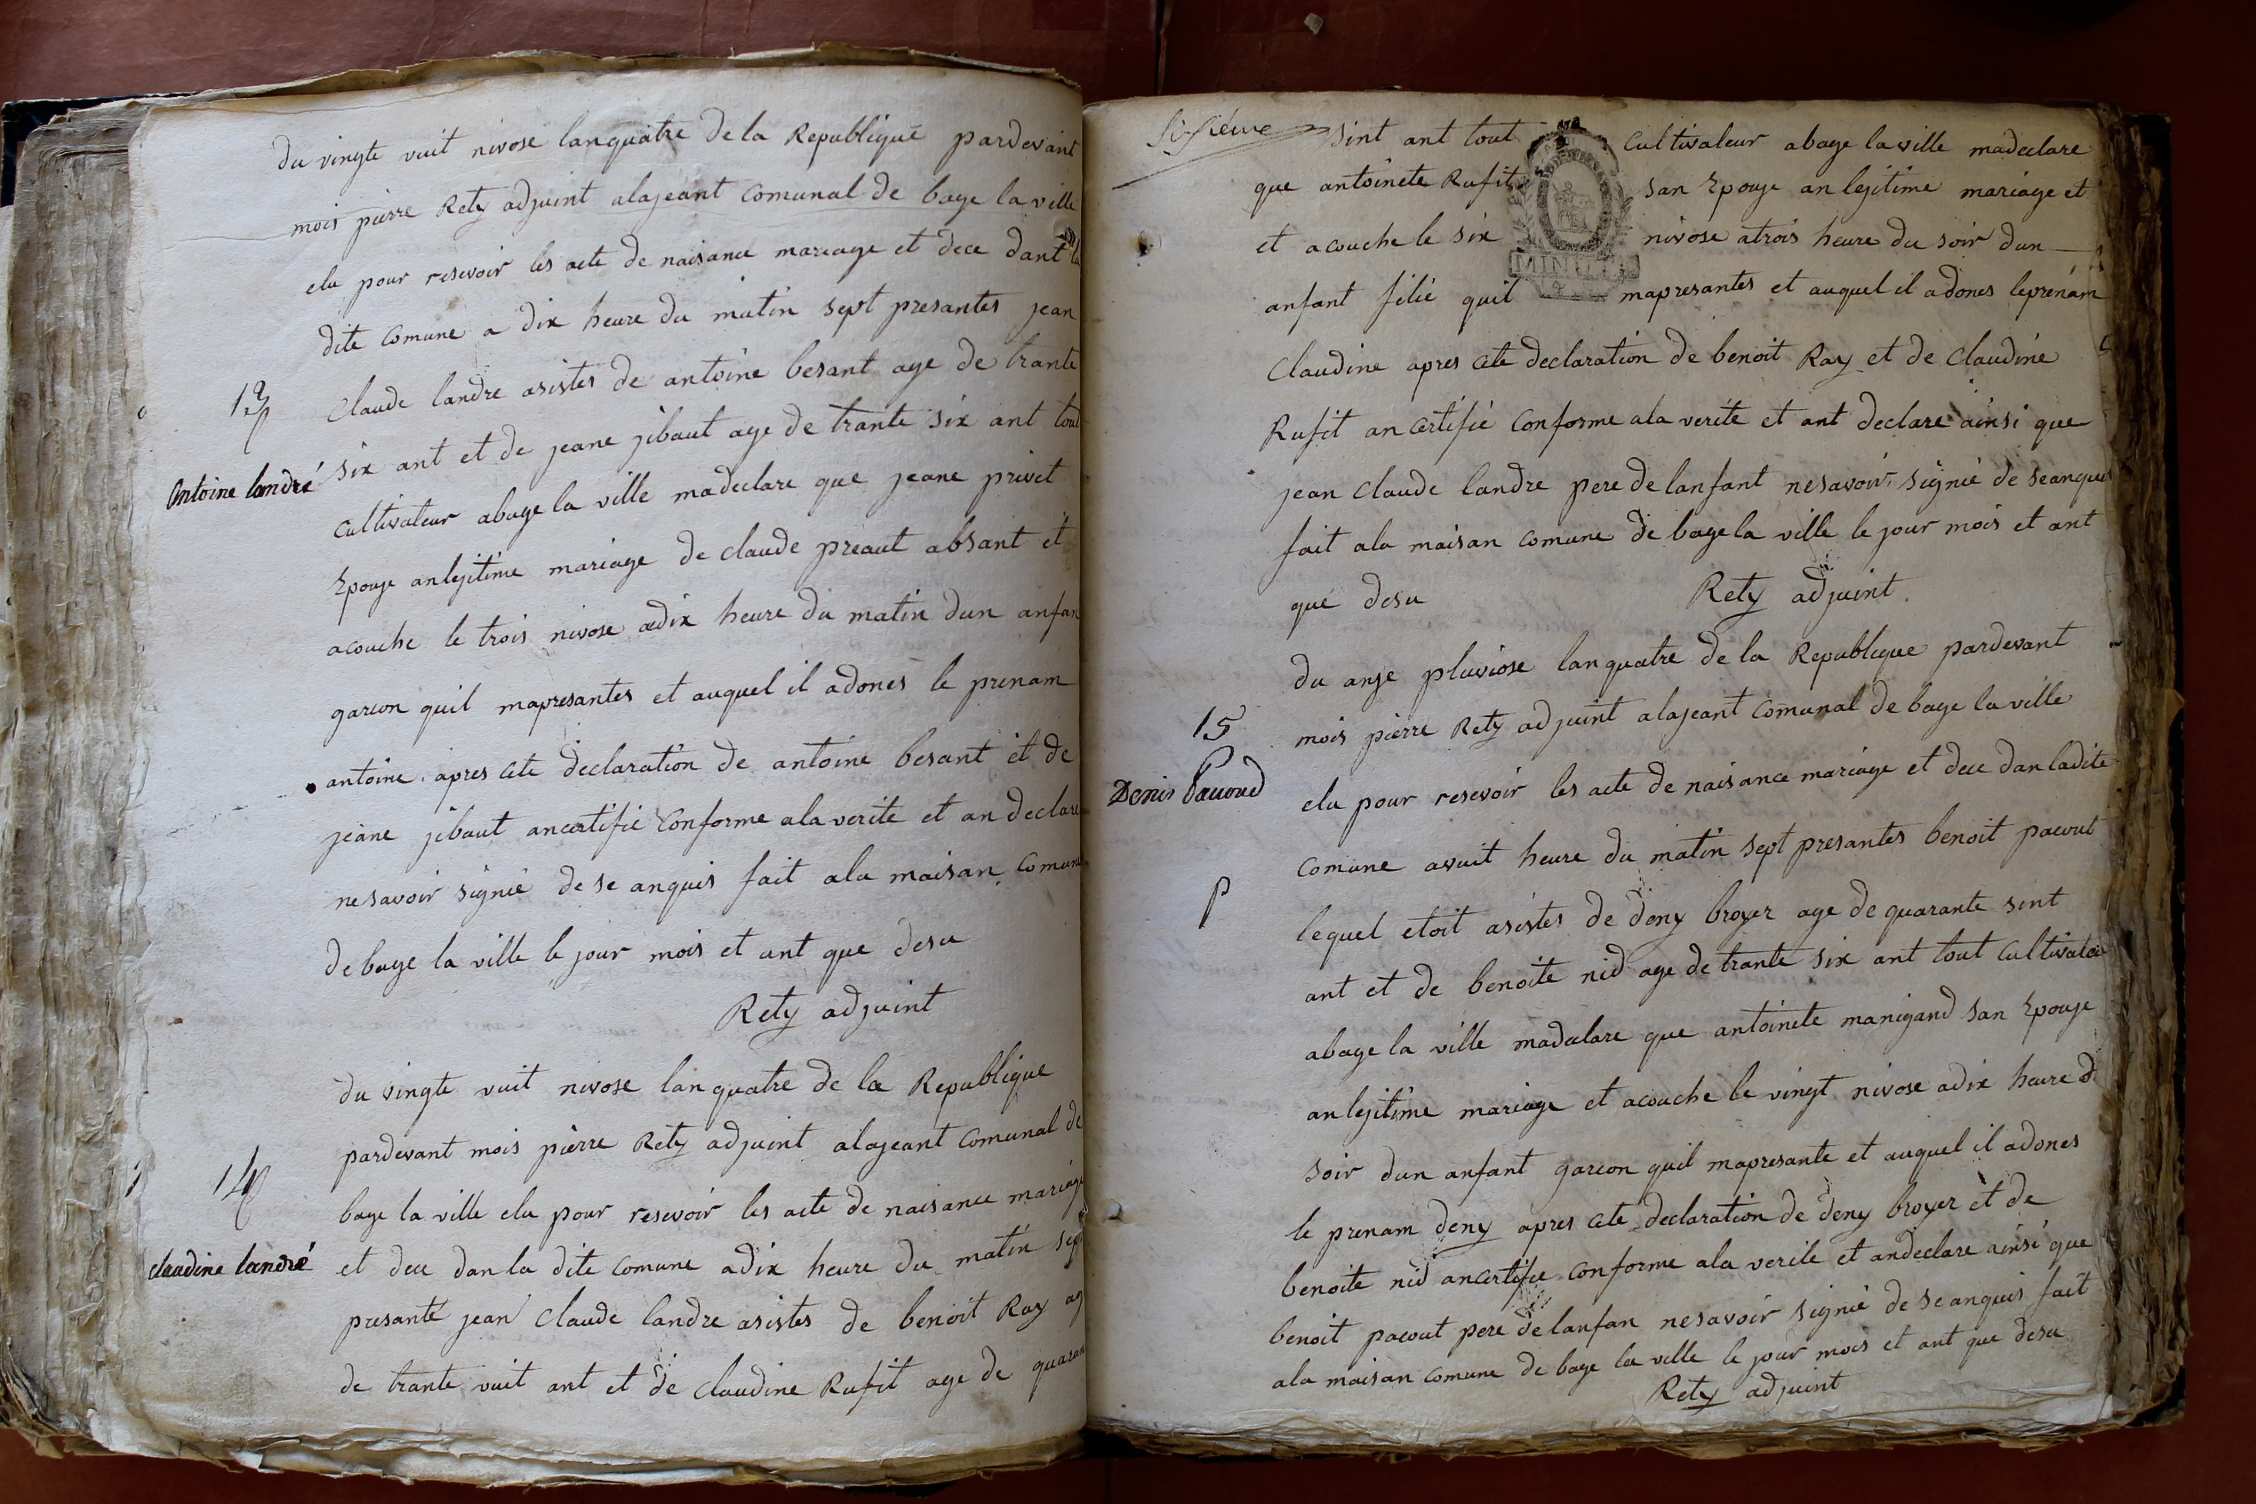 du vingte vuit nivose lanquatre de la Republique pardevant
mois pierre Rety adjuint alajeant comunal de bage la ville
elu pour resevoir les acte de naisance mareage et dece dant la
dite comune a dix heure du matin sept presantes jean
13
claude landre asistes de antoine besant age de trante
six ant et de jeane jibaut age de trante six ant tout
Antoine landré
cultivateur abage la ville madeclare que jeane privet
Epouje anlejitime mariage de claude preaut absant et
acouche le trois nivose adix heure du matin dun anfan
garcon quil mapresantes et auquel il adones le prenam
antoine apres cete declaration de antoine besant et de
jeane jibaut ancertifie conforme ala verite et an declare
nesavoir signie de se anquis fait ala maisan comune
de bage la ville le jour mois et ant que desu
Rety adjuint
du vingte vuit nivose lanquatre de la Republique
pardevant mois pierre Rety adjuint alajeant comunal de
14
bage la ville elu pour resevoir les acte de naisance mariage
et dece dan la dite comune adix heure du matin sept
claudine landré
presante jean claude landre asistes de benoit Ray ag
de trante vuit ant et de claudine Rufit age de quaran
sifiéme
sint ant tout cultivateur abage la ville madeclare
que antoinete Rufit san Epouje an lejitime mariage et
et acouche le six nivose atrois heure du soir dun
MINUTE
anfant filie quil mapresantes et auquel il adones leprenam
claudine apres cete declaration de benoit Ray et de claudine
Rufit ancertifie conforme ala verite et ant declare ainsi que
jean claude landre pere de lanfant nesavoir signie de seanques
fait ala maisan comune de bagela ville le jour mois et ant
que desu Rety adjuint
du anje pluviose lanquatre de la Republique pardevant
mois pierre Rety adjuint alajeant comunal de bage la ville
15
Denis Pacoud
elu pour resevoir les acte de naisance mariage et dece dan ladite
comune avuit heure du matin sept presantes benoit pacout
P
lequel etoit asistes de deny broyer age de quarante sint
ant et de benoite nid age de trante six ant tout cultivateur
abage la ville madeclare que antoinete manigand san Epouje
anlejitime mariage et acouche le vingt nivose adix heure d
soir dun anfant garcon quil mapresante et auquel il adones
le prenam deny apres cete declaration de deny broyer et de
benoite nid ancertifie conforme ala verite et andeclare ainsi que
benoit pacout pere delanfan nesavoir signie de seanquis fait
ala maisan comune de bage la ville le jour mois et ant que desu
Rety adjuint